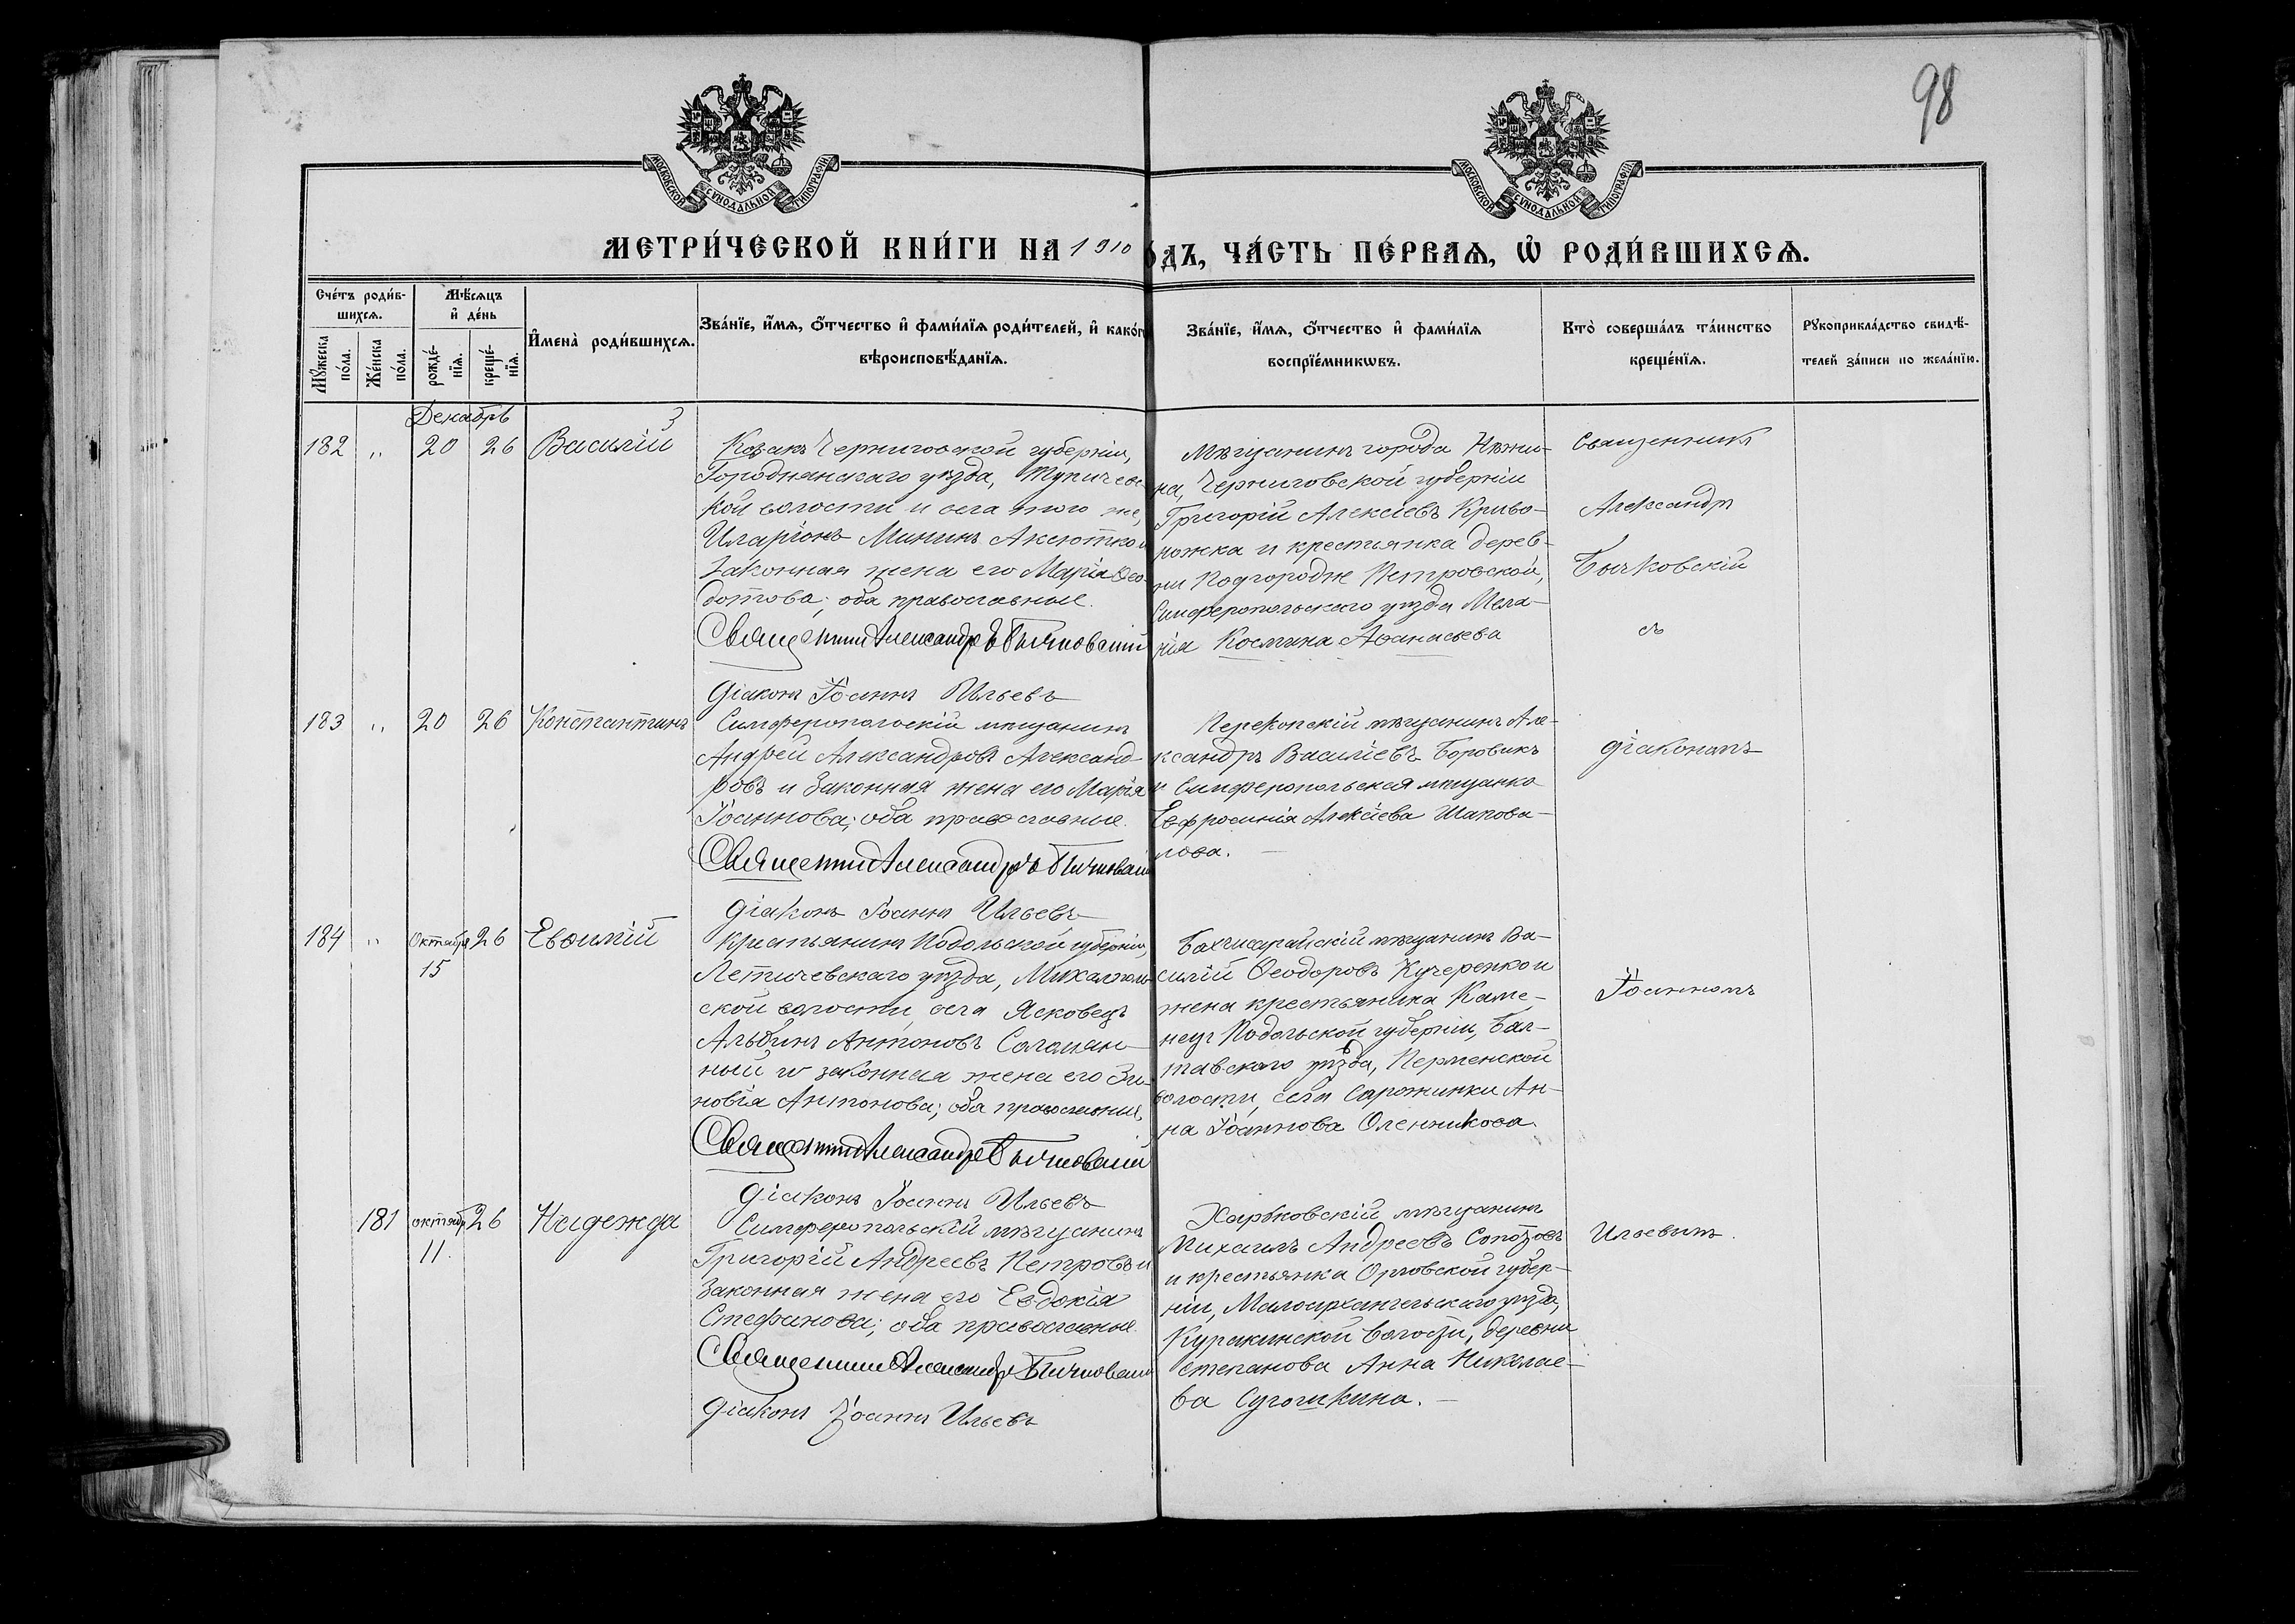 98
МОСКОВСКОЙ СѴНОДАЛЬНОЙ ТИПОГРАФІИ
МОСКОВСКОЙ СѴНОДАЛЬНОЙ ТИПОГРАФІИ
МЕТРИ́ЧЕСКОЙ КНИ́ГИ НА 1910 о́дъ, ЧА́СТЬ ПЕ́РВАѦ, Ѡ҆ РОДИ́ВШИХСѦ.
Сче́тъ роди́в-
шихсѧ.
Мꙋ́жеска по́ла.
Же́нска по́ла.
Мѣ́сѧцъ
и҆ де́нь
рожде́-
нїѧ.
креще́-
нїѧ.
И҆мена̀ роди́вшихсѧ.
Зва́нїе, и҆́мѧ, ѻ҆́тчество и҆ фами́лїѧ роди́телей, и҆ како́г
вѣроисповѣ́данїѧ.
Зва́нїе, и҆́мѧ, ѻ҆́тчество и҆ фами́лїѧ
воспрїе́мникѡвъ.
Кто̀ соверша́лъ та́инство
креще́нїѧ.
Рꙋкоприкла́дство свидѣ́-
телей за́писи по жела́нїю.
Декабрь
182 „ 20 26 Василій 3
Козакъ Черниговской губерніи,
Городнянскаго уѣзда, Тупичевс-
кой волости и села того же,
Иларіонъ Мининъ Аксютко и
законная жена его Марія Ѳео-
дотова; оба православные.
Священникъ Александръ Бычковскій
Діаконъ Іоаннъ Ильевъ
Мѣщанинъ города Нѣжи-
на, Черниговской губерніи
Григорій Алексіевъ Криво-
ножка и крестьянка дерев-
ни Подгородне Петровской,
Симферопольскаго уѣзда Мела-
нія Космина Аѳанасьева
Священникъ
Александръ
Бычковскій
съ
183 „ 20 26 Константинъ
Симферопольскій мѣщанинъ
Андрей Александровъ Александ-
ровъ и законная жена его Марія
Іоаннова; оба православные.
Священникъ Александръ Бычковскій
Діаконъ Іоаннъ Ильевъ
Перекопскій мѣщанинъ Але-
ксандръ Василіевъ Боровикъ
и Симферопольская мѣщанка
Евфросинія Алексіева Шапова-
лова.
діакономъ
184 „ Октября 15 26 Евѳимій
Крестьянинъ Подольской губерніи,
Летичевскаго уѣзда, Михалполь-
ской волости, села Ясковецъ
Альбинъ Антоновъ Соломян-
ный и законная жена его Зи-
новія Антонова; оба православные.
Священникъ Александръ Бычковскій
Діаконъ Іоаннъ Ильевъ
Бахчисарайскій мѣщанинъ Ва-
силій Ѳеодоровъ Кучеренко и
жена крестьянина Каме-
нецъ Подольской губерніи, Бал-
тавскаго уѣзда,
волости, села Анна
Іоаннова Оленникова.
Іоанномъ
181 октября 11. 26 Надежда
Симферопольскій мѣщанинъ
Григорій Андреевъ Петровъ и
законная жена его Евдокія
Стефанова; оба православные.
Священникъ Александръ Бычковскій
Діаконъ Іоаннъ Ильевъ
Харьковскій мѣщанинъ
Михаилъ Андреевъ
и крестьянка Орловской губер-
ніи, Малоархангельскаго уѣзда,
Куракинской волости, деревни
Степанова Анна Николае-
ва
Ильевымъ.